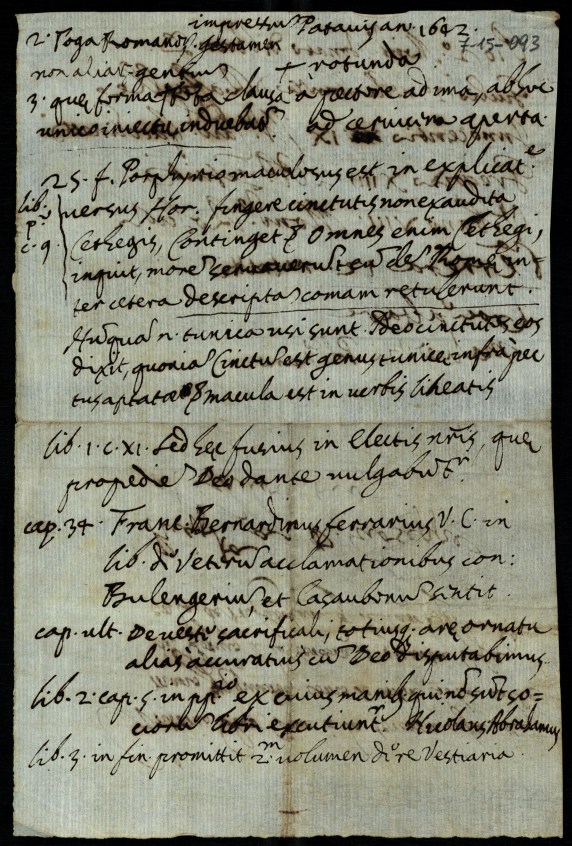 impressu Patavis an. 1642.
7-15-093
2. Toga Romanor. gestamen
non aliar. gentiu + rotunda
3. quę forma clausa à pectore ad ima, absue
unico iniectu induebat ad cervicem aperta.
25. f. Porphyrio maculosus est in explicat.e
lib. 2 versus Hor. fingere cinctutis non exaudita
p. c. 9. Cethegis, Continget & Omnes enim Cethegi,
inquit, more servaverut Romę in-
ter cetera descripta comam retulerunt.
Nunqua n. tunica usi sunt. Ideo cinctutos eos
dixit, quonia Cinctus est genus tunicę infra pec
tus aptatae & macula est in verbis lineatis
lib. 1. c. XI. Sed hęc fusius in Electis nr̃is, quę
propedie Deo dante vulgabut.r
cap. 34. Franc. Bernardinus ferrarius V. C. in
lib. di Veteru acclamationibus con:
Bulengeriu, et Casaubonu sentit.
cap. ult. De veste sacrificali, totiusq. arę ornatu
alias accuratius cu Deo disputabimus.
lib. 2. cap. 5. in pp.io ex cuius manib. quinde sut so=
cioru libri excutiunt.r Nicolaus Abrahamus
lib. 3. in fin. promittit 2.m volumen di re Vestiaria.